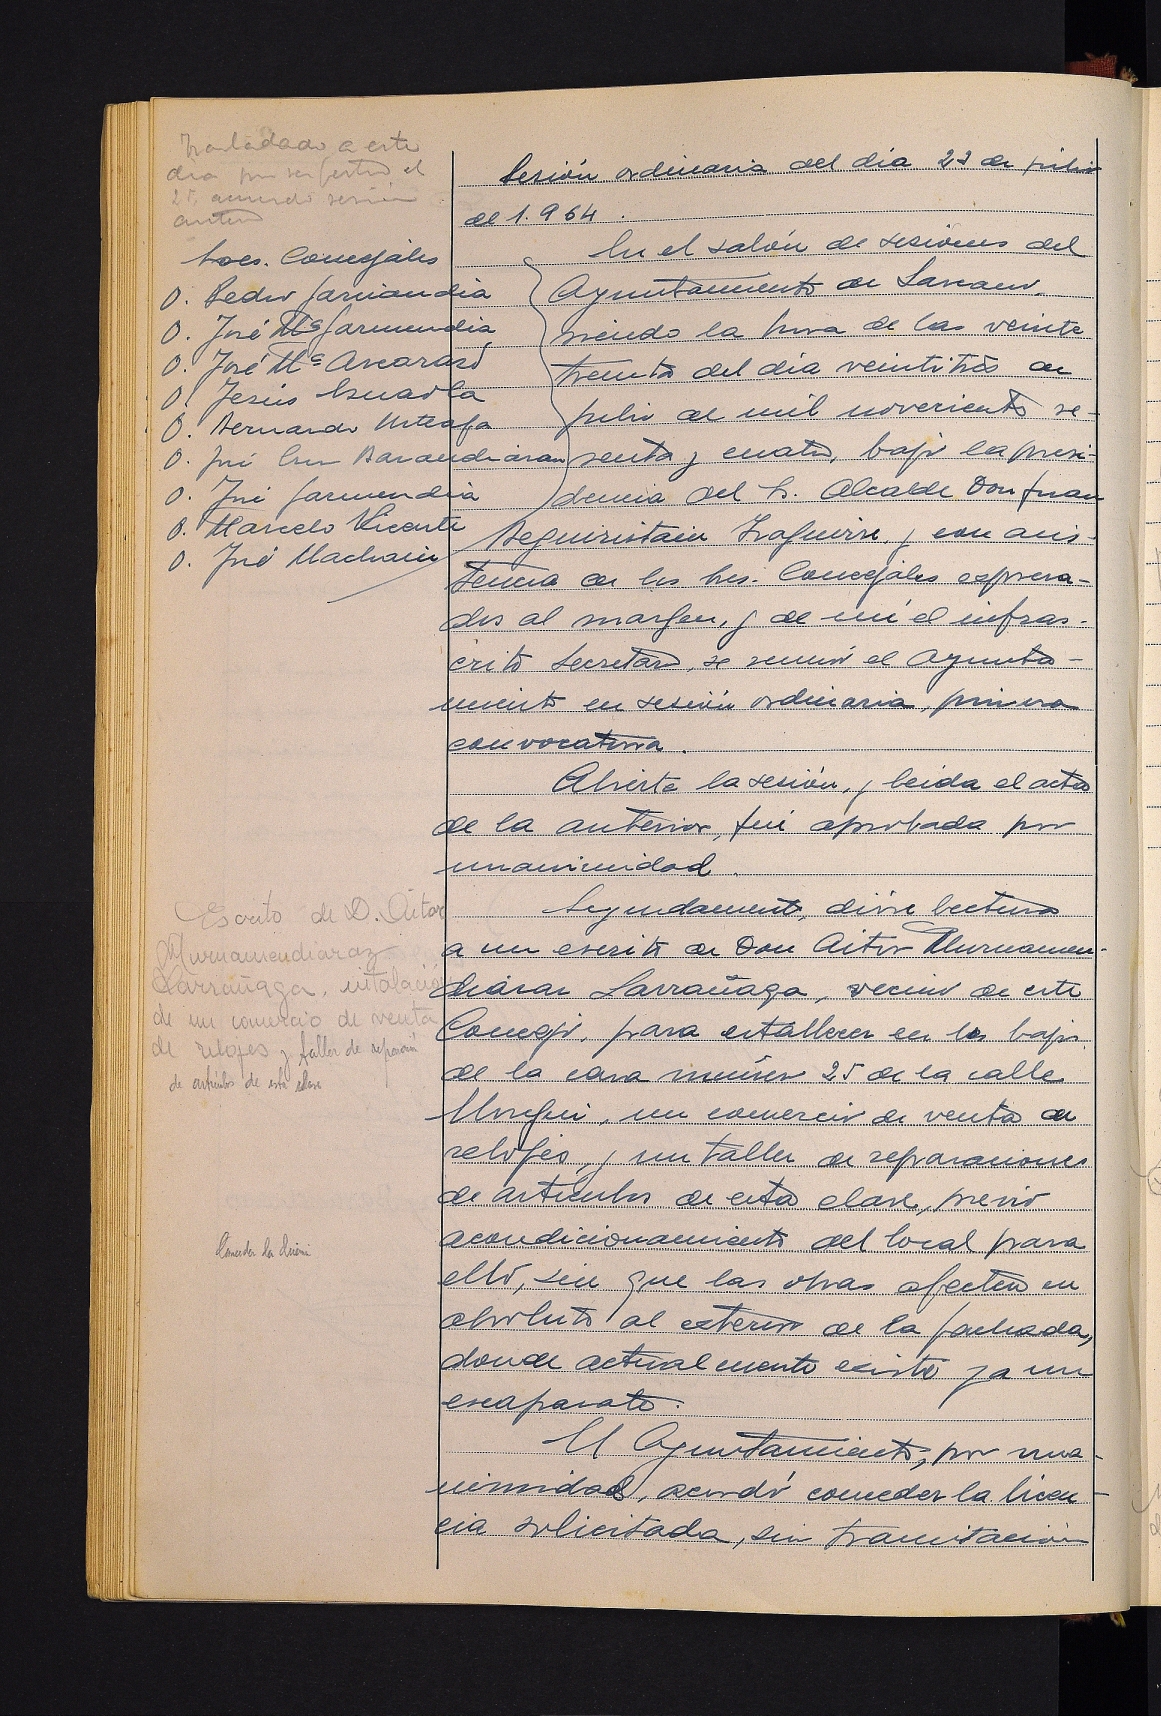 Trasladado a este
dia por ser festivo el
25, acuerdo sesión
anterior
Sesión ordinaria del día 23 de julio
de 1.964.
Sres. Concejales
D. Pedro Garmendia
D. José Mª Garmendia
D. José Mª Ascarasó
D. Jesús
D. Bernardo Urteaga
D. José Cruz Barandiaran
D. José Garmendia
D. Marcelo Vicente
D. José Machain
En el salón de sesiones del
Ayuntamiento de Lazcano,
siendo la hora de las veinte
treinta del día veintitrés de
julio de mil novecientos se-
senta y cuatro, bajo la presi-
dencia del Sr. Alcalde Don Juan
Beguiristain Izaguirre, y con asis-
tencia de los Sres. Concejales expresa-
dos al margen, y de mí el infras-
crito Secretario, se reunió el Ayunta-
miento en sesión ordinaria, primera
convocatoria.
Abierta la sesión, y leida el acta
de la anterior, fué aprobada por
unanimidad.
Escrito de D. Aitor
Murnamendiaraz
Larrañaga, intalación
de un comercio de venta
de relojes y taller de reparación
de artículos de esta clase
Segundamente, dióse lectura
a un escrito de Don Aitor Murnamen-
diaraz Larrañaga, vecino de este
Concejo, para establecer en los bajos
de la casa número 25 de la calle
un comercio de venta de
relojes, y un taller de reparaciones
de artículos de esta clase, previo
acondicionamiento del local para
ello, sin que las obras afecten en
absoluto al exterior de la fachada,
donde actualmente existe ya un
escaparate.
Conceder la licencia
El Ayuntamiento, por una-
nimidad, acordó conceder la licen-
cia solicitada, sin tramitación